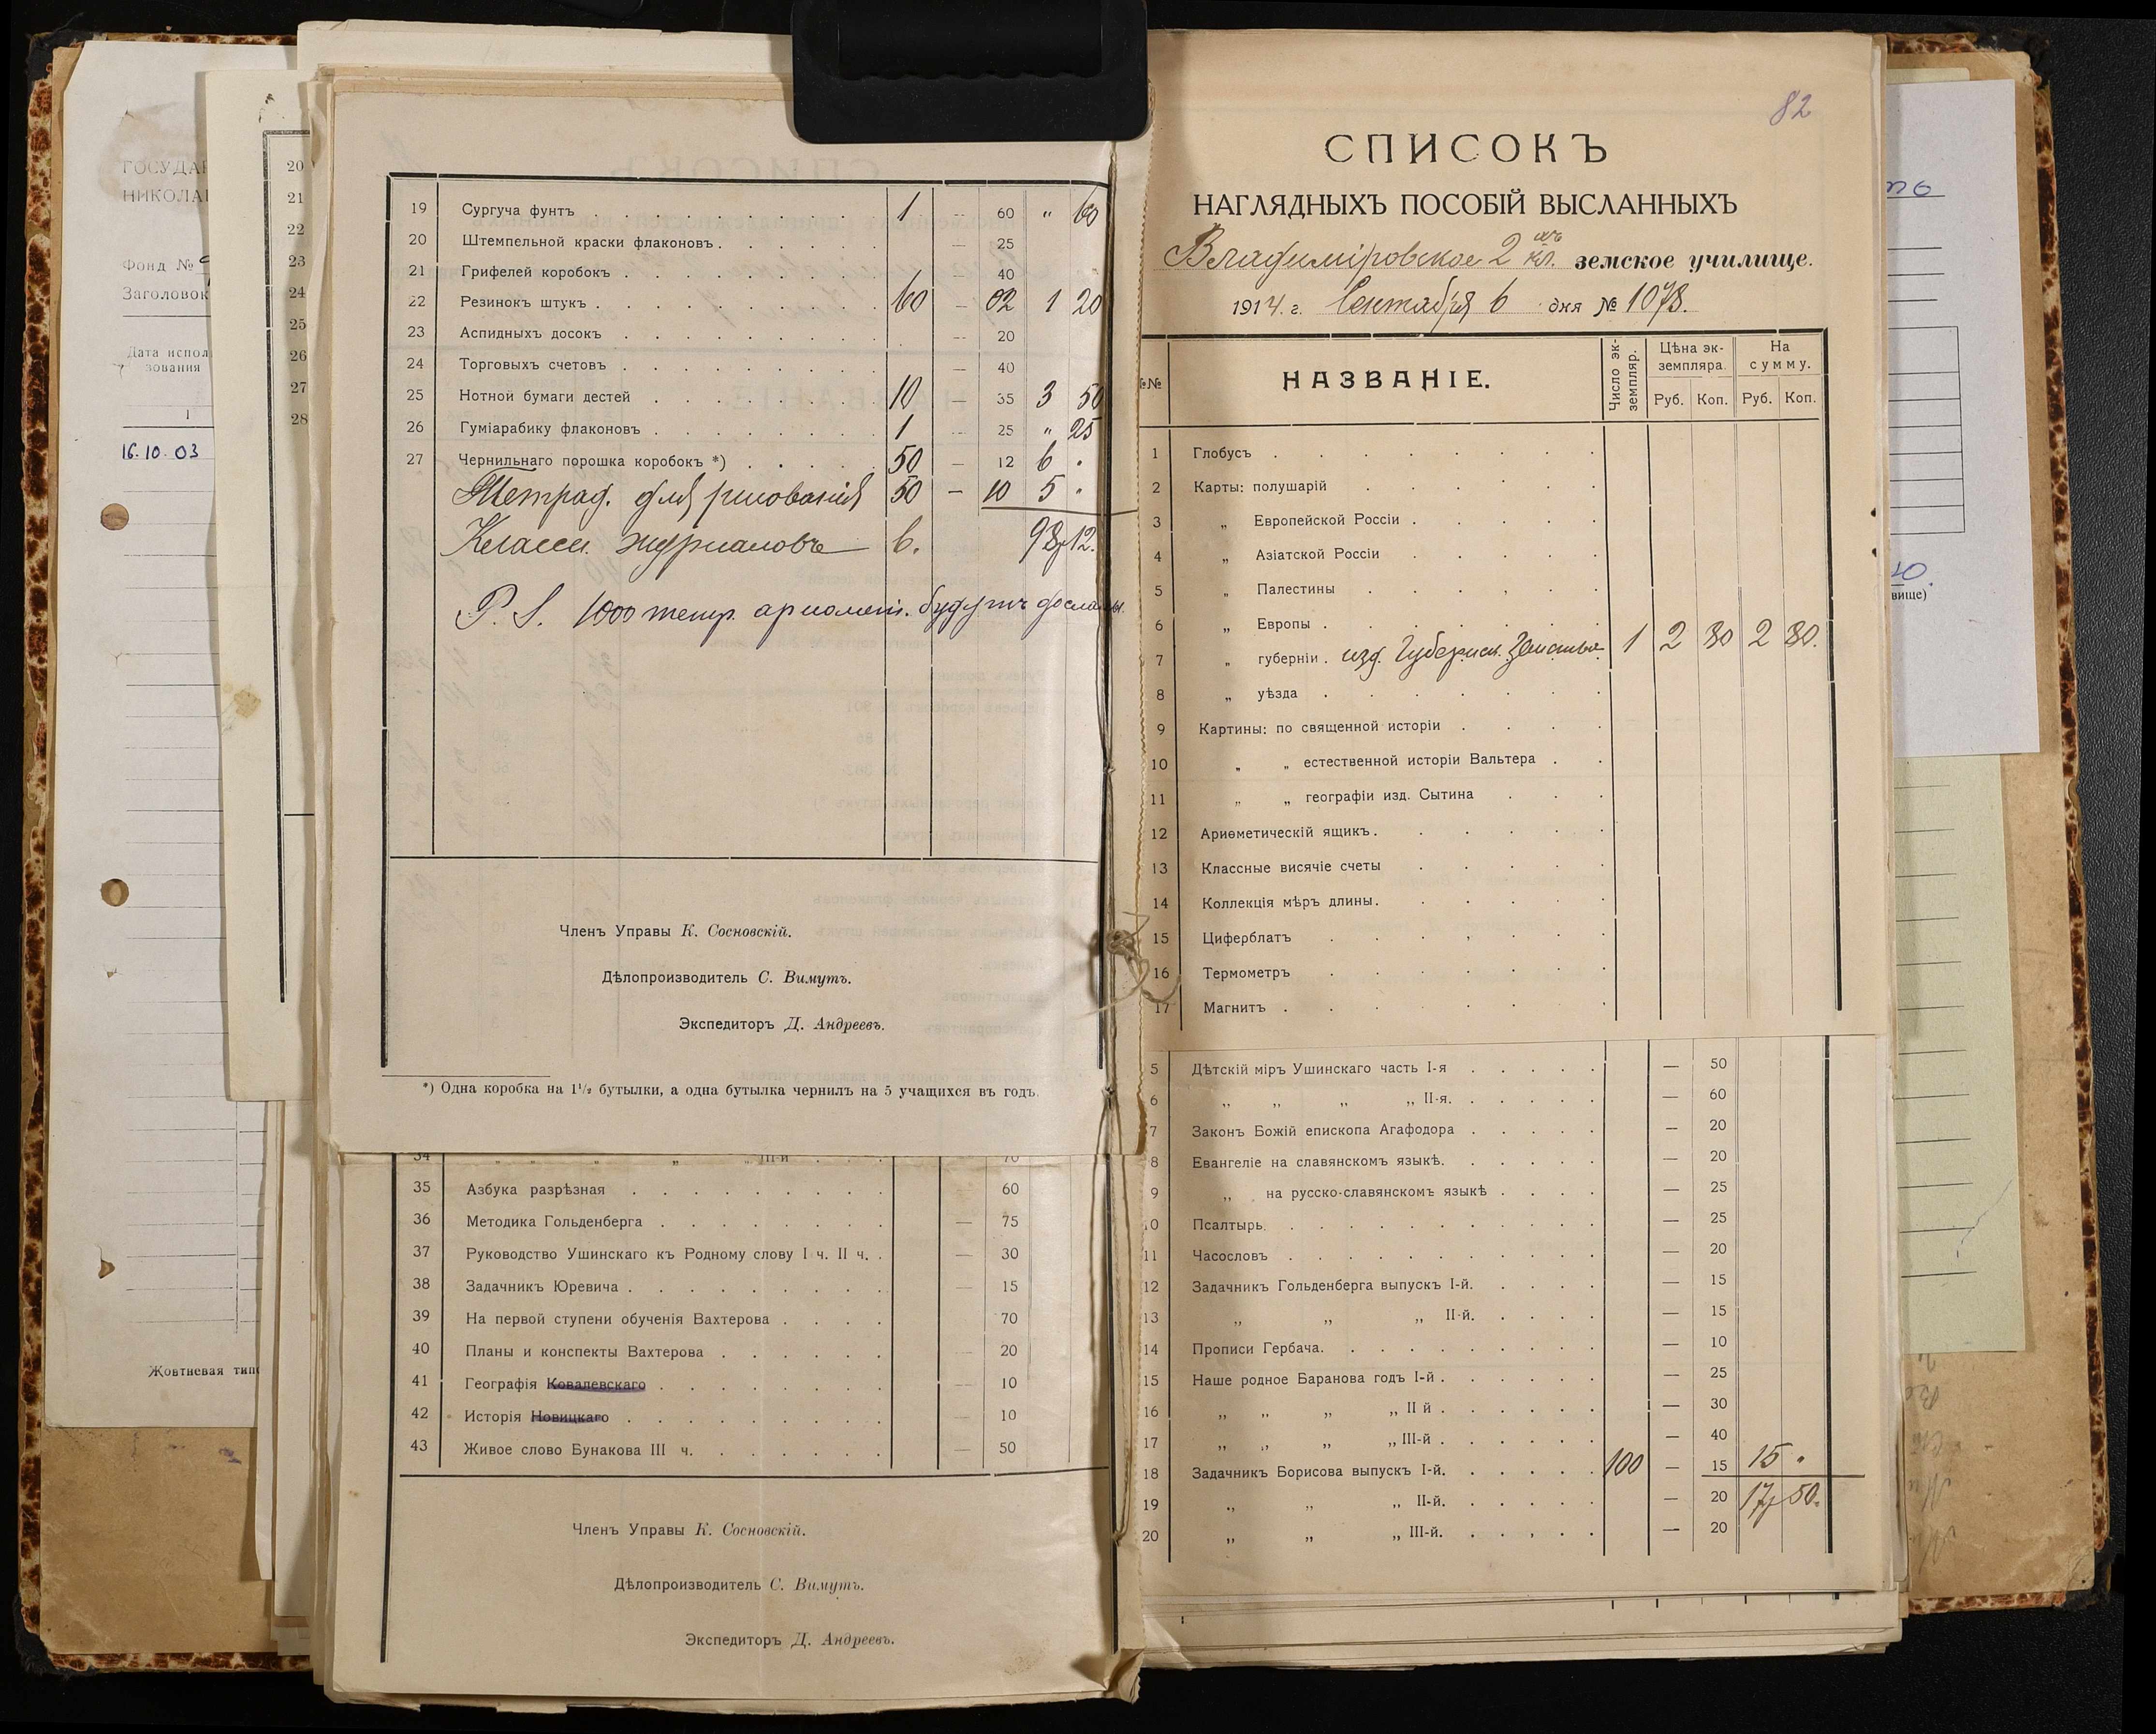 ГОСУДАР
НИКОЛА
Фонд №
Заголовок
Дата исполь
зования
1
16.10.03
Жовтневая тип
20
21
22
23
24
25
26
27
28
19 Сургуча фунтъ 1 — 60 „ 60
20 Штемпельной краски флаконовъ — 25
21 Грифелей коробокъ — 40
22 Резинокъ штукъ 60 — 02 1 20
23 Аспидныхъ досокъ — 20
24 Торговыхъ счетовъ — 40
25 Нотной бумаги дестей 10 — 35 3 50
26 Гуміарабику флаконовъ 1 — 25 „ 25
27 Чернильнаго порошка коробокъ *) 50 — 12 6 „
Тетрад. для рисованія 50 — 10 5 „
Классн. журналовъ 6. 98р 12.
P. S. 1000 тетр. ариѳмет. будутъ досланы.
Членъ Управы К. Сосновскій.
Дѣлопроизводитель С. Вимутъ.
Экспедиторъ Д. Андреевъ.
*) Одна коробка на 1¹/₂ бутылки, а одна бутылка чернилъ на 5 учащихся въ годъ.
34 „ „ „ „ III-й 70
35 Азбука разрѣзная 60
36 Методика Гольденберга — 75
37 Руководство Ушинскаго къ Родному слову I ч. II ч. — 30
38 Задачникъ Юревича — 15
39 На первой ступени обученія Вахтерова 70
40 Планы и конспекты Вахтерова — 20
41 Географія Ковалевскаго — 10
42 Исторія Новицкаго — 10
43 Живое слово Бунакова III ч. — 50
Членъ Управы К. Сосновскій.
Дѣлопроизводитель С. Вимутъ.
Экспедиторъ Д. Андреевъ.
82
СПИСОКЪ
НАГЛЯДНЫХЪ ПОСОБІЙ ВЫСЛАННЫХЪ
Владиміровское 2 кл. земское училище.
1914. г. Сентября 6 дня № 1078.
№№ НАЗВАНІЕ. Число экземпляр. Цѣна экземпляра. На сумму.
Руб. Коп. Руб. Коп.
1 Глобусъ
2 Карты: полушарій
3 „ Европейской Россіи
4 „ Азіатской Россіи
5 „ Палестины
6 „ Европы
7 „ губерніи . изд. Губернск. Земства 1 2 30 2 30.
8 „ уѣзда
9 Картины: по священной исторіи
10 „ „ естественной исторіи Вальтера
11 „ „ географіи изд. Сытина
12 Ариѳметическій ящикъ
13 Классные висячіе счеты
14 Коллекція мѣръ длины
15 Циферблатъ
16 Термометръ
17 Магнитъ
5 Дѣтскій міръ Ушинскаго часть I-я — 50
6 „ „ „ „ II-я. — 60
7 Законъ Божій епископа Агафодора — 20
8 Евангеліе на славянскомъ языкѣ. — 20
9 „ на русско-славянскомъ языкѣ — 25
10 Псалтырь — 25
11 Часословъ — 20
12 Задачникъ Гольденберга выпускъ I-й. — 15
13 „ „ „ II-й. — 15
14 Прописи Гербача. — 10
15 Наше родное Баранова годъ I-й — 25
16 „ „ „ „ II й — 30
17 „ „ „ „ III-й — 40
18 Задачникъ Борисова выпускъ I-й. 100 — 15 15 „
19 „ „ „ II-й. — 20 17р 50.
20 „ „ „ III-й. — 20
вище)